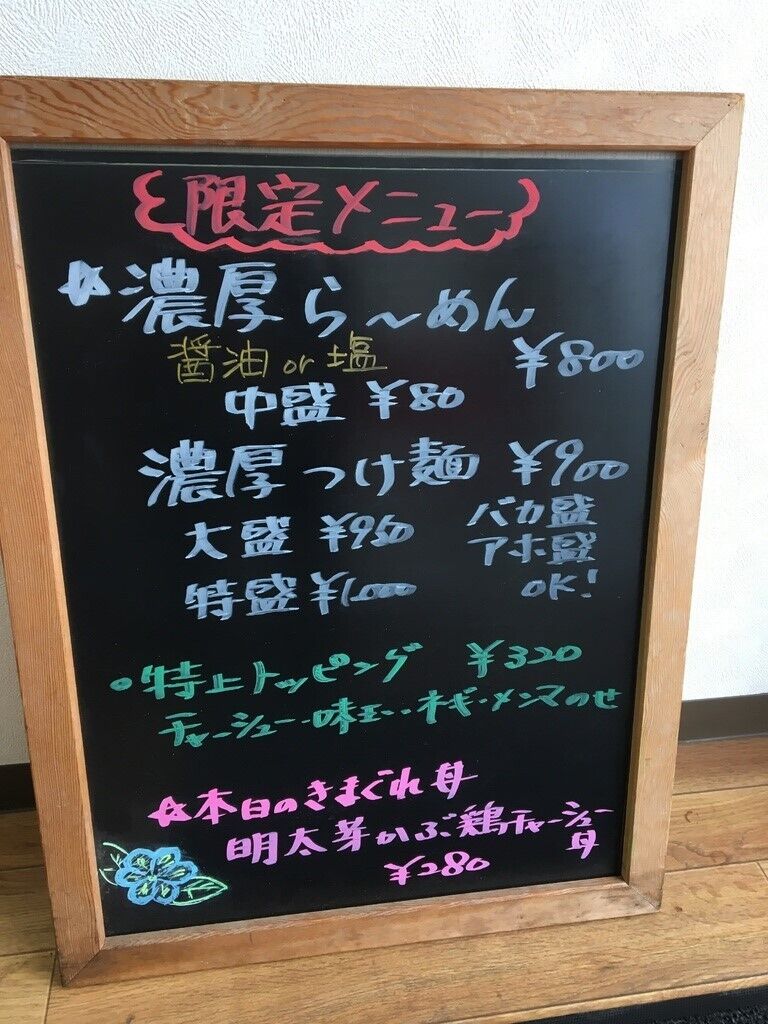 限定メニュー
☆濃厚ら〜めん
醤油or塩 ¥800
中盛 ¥80
濃厚つけ麺 ¥900
大盛 ¥950 バカ盛
アホ盛
特盛 ¥1,000 OK!
●特上トッピング ¥320
チャーシュー・味玉・ネギ・メンマのせ
☆本日のきまぐれ丼
明太芽かぶ鶏チャーシュー
丼
¥280